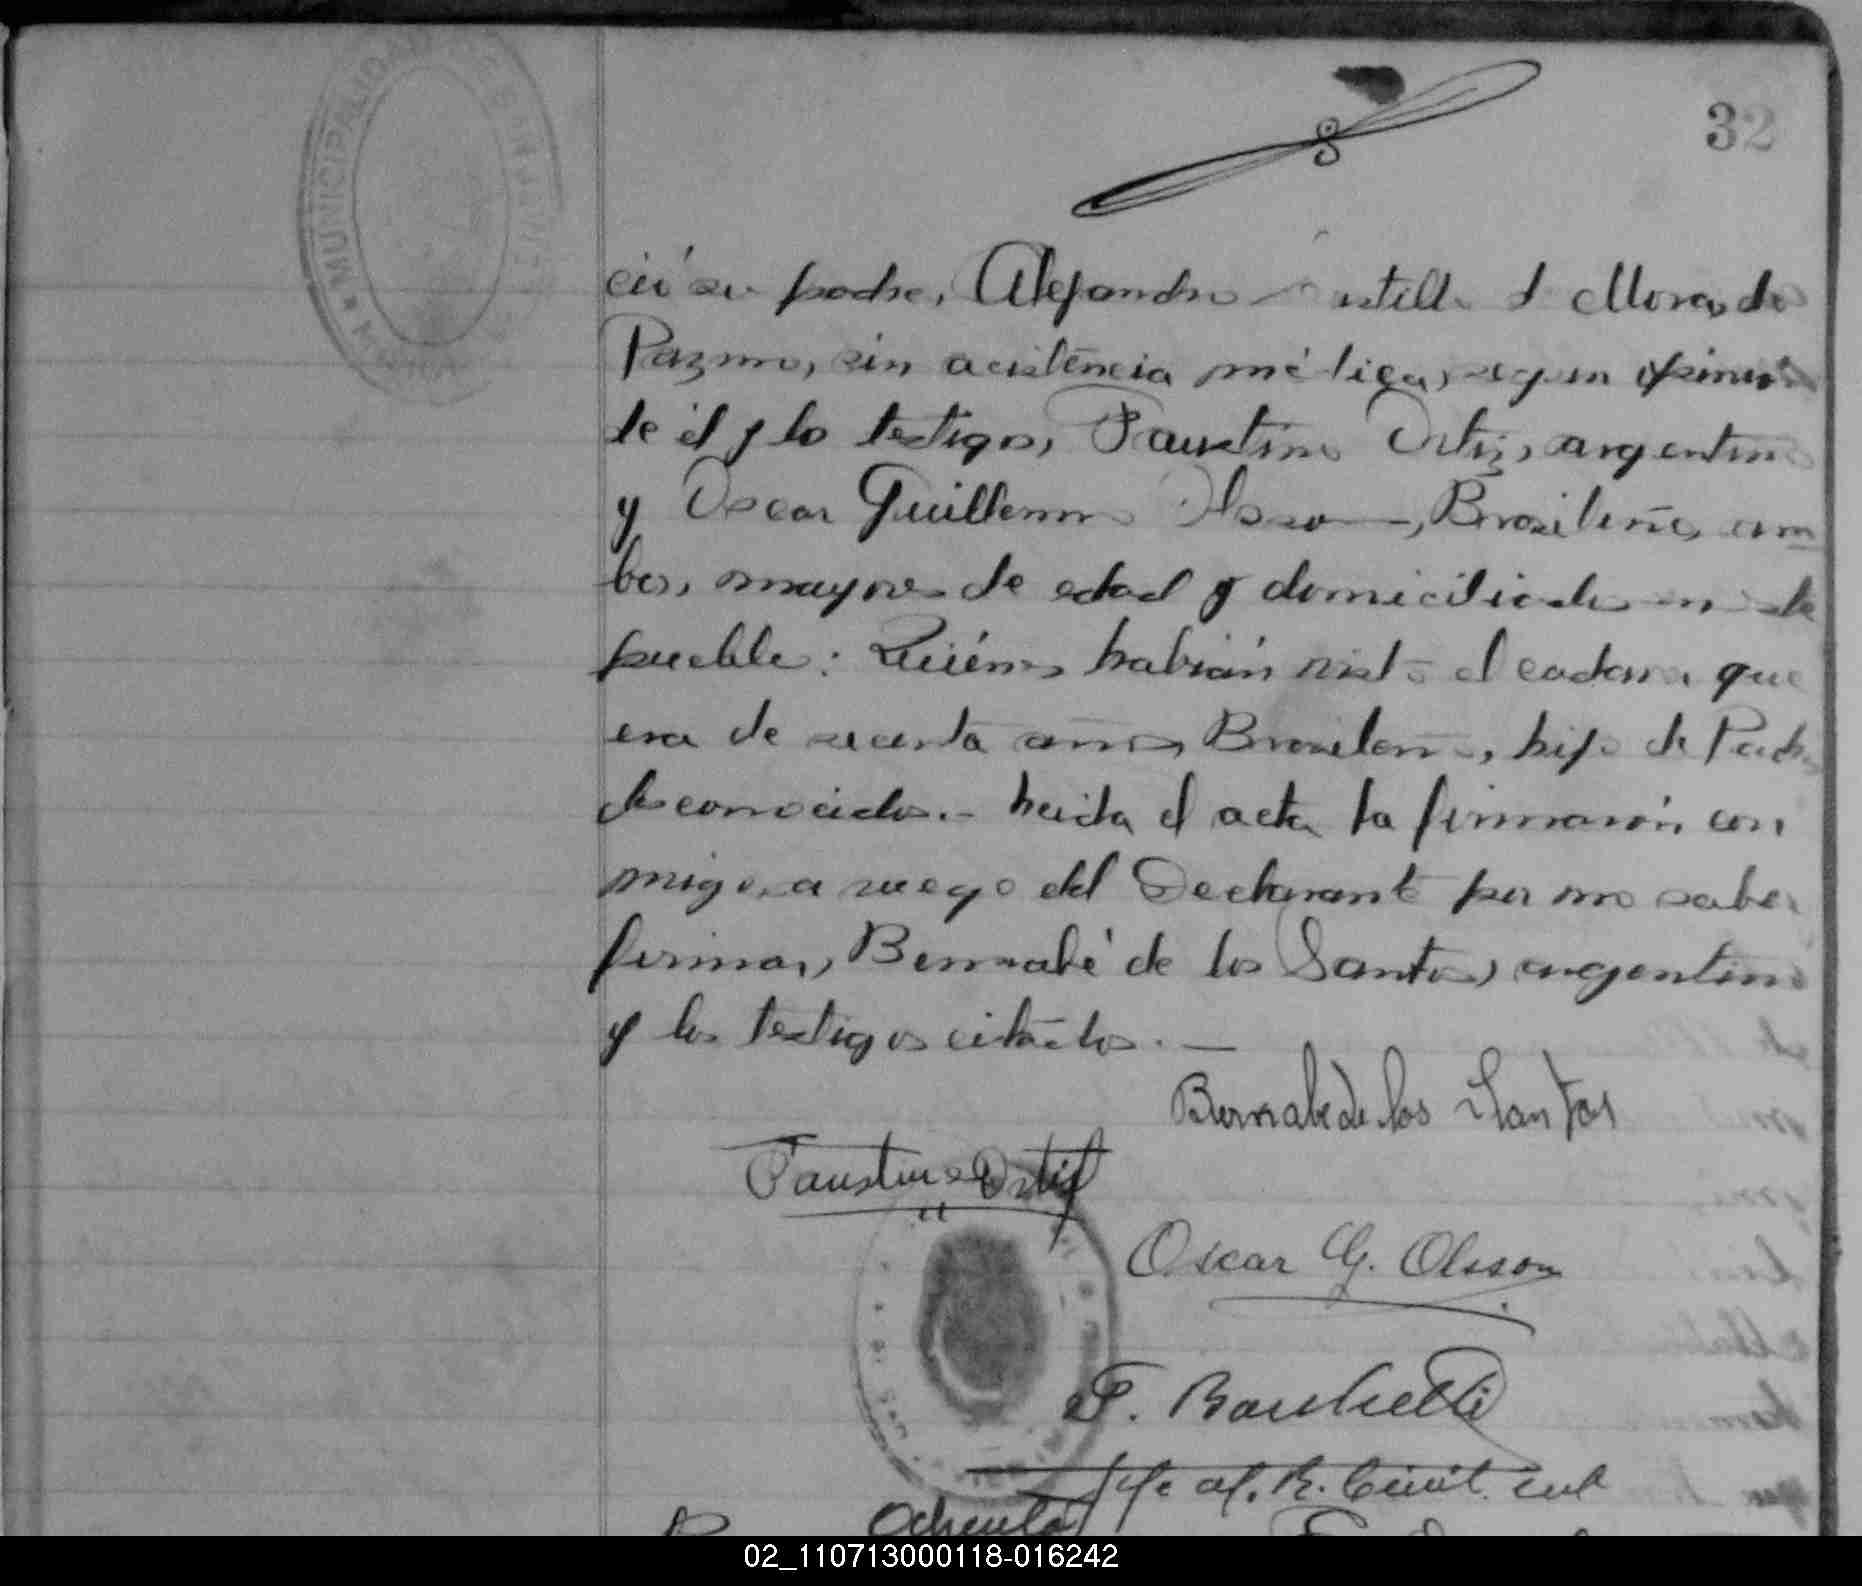 32
MUNICIPALIDAD
ció su padre, Alejandro de
Pazmo, sin acistencia mé dica, segun
de él y los testigos, Faustino Ortiz, argentino
y Oscar Guillermo Olsson, Brasileño, am
bos, mayores de edad y domiciliados en este
pueblo: Quiénes habián visto el cadaver que
era de años, Brasileño, hijo de Padres
desconocidos.- leida el acta la firmarón con
migo, a ruego del Declarante por no saber
firmar, Bernabé de los Santos, argentino
y los testigos citados. —
Bernabe de los Santos
Faustino Ortiz
Oscar G. Olsson
Jefe of. R. Civil.
Ochenta
02_110713000118-016242